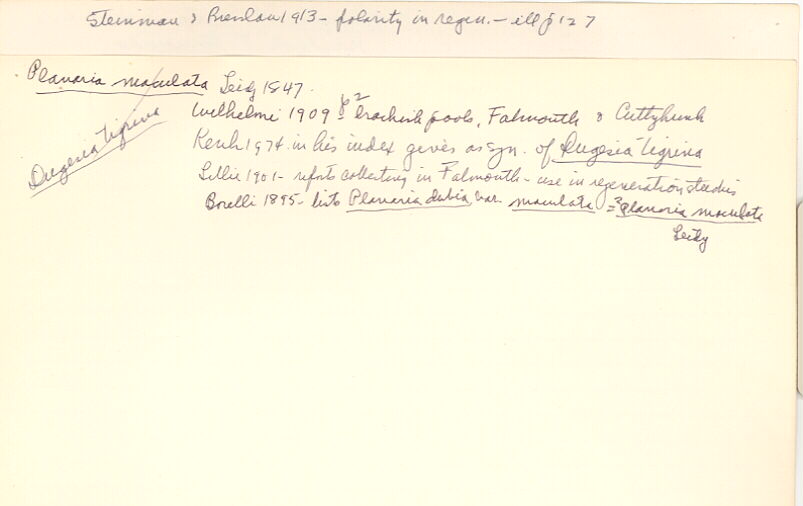 Steinman & Breslau 1913 - polarity in regen. - ill p 127
Planaria maculata Leidy 1847.
Dugesia tigrina
Wilhelmi 1909 p 2 brackish pools, Falmouth & Cuttyhunk
Kenk 1974 in his index gives as syn. of Dugesia tigrina
Lillie 1901 - reports collecting in Falmouth - use in regeneration studies
Borelli 1895 - lists Planaria dubia var. maculata =? Planaria maculata
Leidy